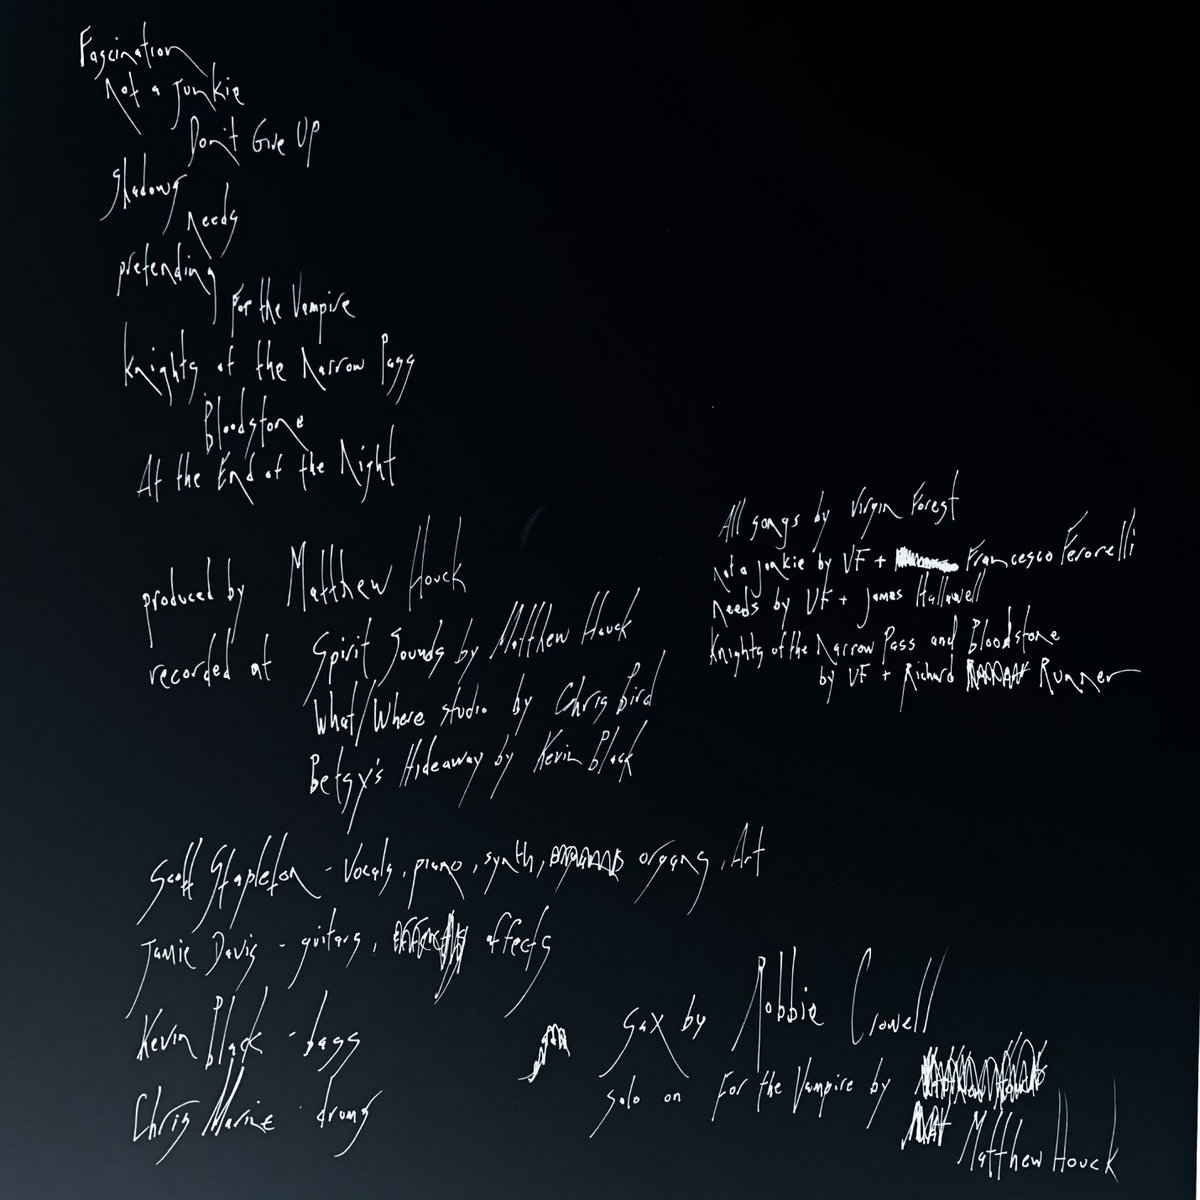 Fascination
Not a Junkie
Don't Give UP
Shadows
Needs
pretending
For the Vampire
Knights of the Narrow Pass
Bloodstone
At the End of the Night
produced by Matthew Houck
recorded at Spirit Sounds by Matthew Houck
What/Where Studio by Chris Bird
Betsy's Hideaway by Kevin Black
All songs by Virgin Forest
Not a junkie by VF + Francesco Ferorelli
Needs by VF + James Hallawell
Knights of the Narrow Pass and Bloodstone
by VF + Richard Runner
Scott Stapleton - Vocals, piano, synth, organs, Art
Jamie Davis - guitars, effects
Kevin Black - bass
Chris Marine - drums
Sax by Robbie Crowell
Solo on For the Vampire by
Matthew Houck